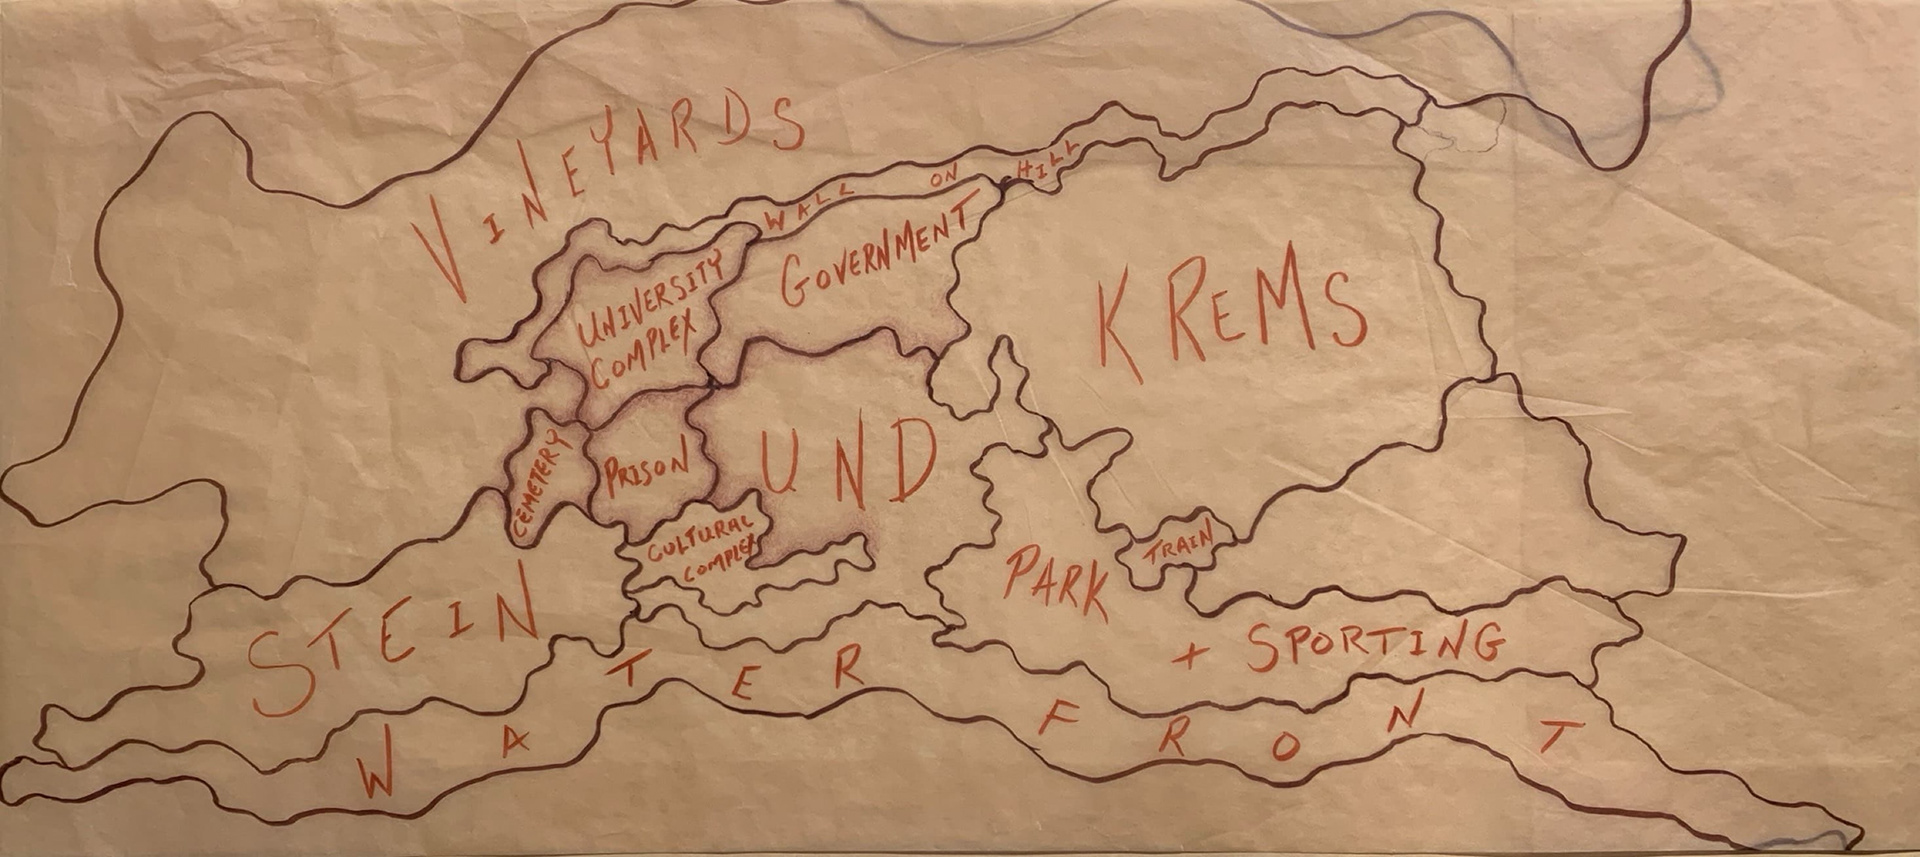 VINEYARDS
WALL ON HILL
UNIVERSITY
COMPLEX
GOVERNMENT
KREMS
CEMETERY
PRISON
UND
CULTURAL
COMPLEX
TRAIN
PARK
+ SPORTING
STEIN
WATERFRONT